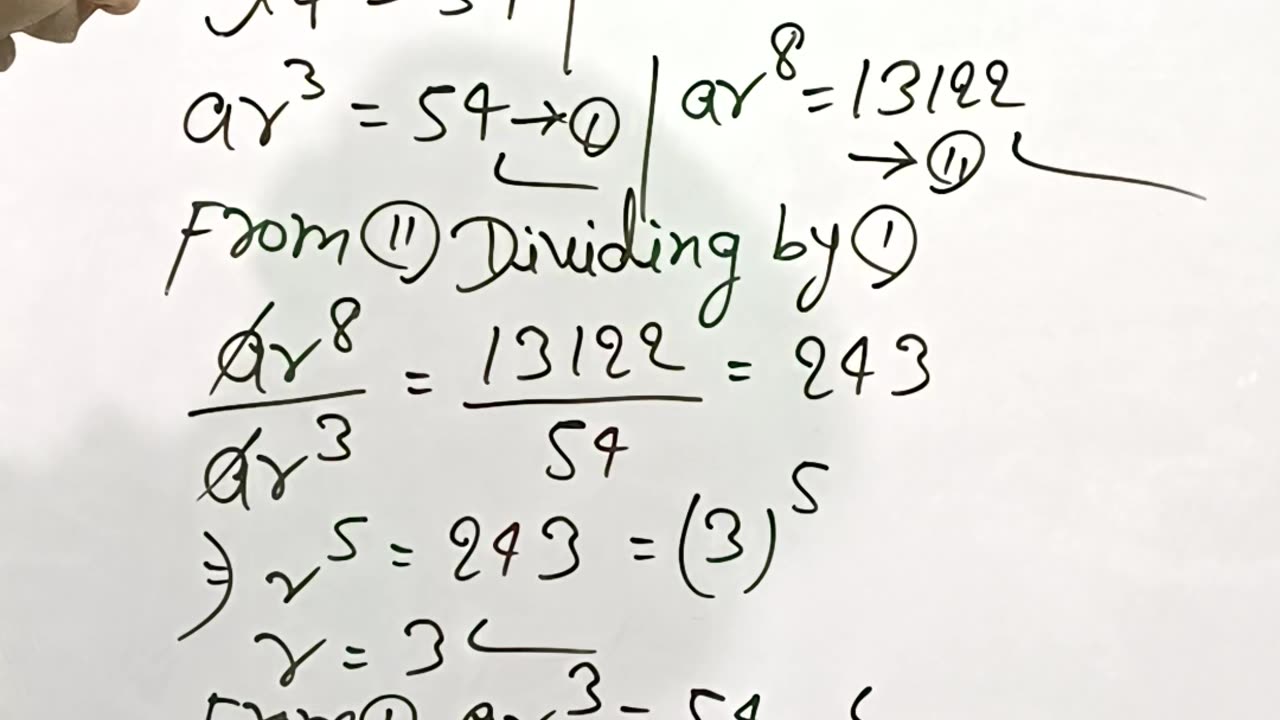 ar³ = 54 → ① | ar⁸ = 13122
→ ⑪
From ⑪ Dividing by ①
ar⁸/ar³ = 13122/54 = 243
⇒ r⁵ = 243 = (3)⁵
r = 3
From ① ar³ = 54